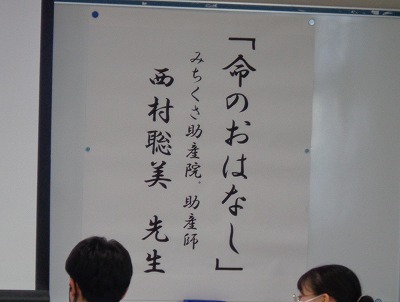 「命のおはなし」
みちくさ助産院、助産師
西村聡美 先生